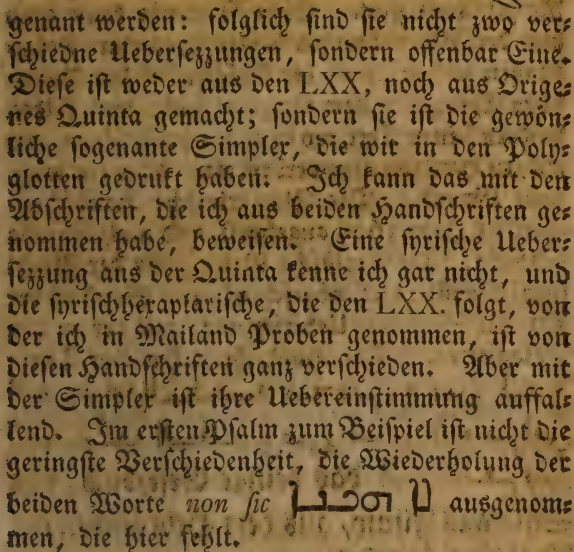 genant werden: folglich sind sie nicht zwo ver⸗
schiedne Uebersezzungen, sondern offenbar Eine.
Diese ist weder aus den LXX, noch aus Orige⸗
nes Quinta gemacht; sondern sie ist die gewön⸗
liche sogenante Simplex, die wir in den Poly⸗
glotten gedrukt haben. Ich kann das mit den
Abschriften, die ich aus beiden Handschriften ge⸗
nommen habe, beweisen. Eine syrische Ueber⸗
sezzung aus der Quinta kenne ich gar nicht, und
die syrischhexaplarische, die den LXX. folgt, von
der ich in Mailand Proben genommen, ist von
diesen Handschriften ganz verschieden. Aber mit
der Simplex ist ihre Uebereinstimmung auffal⸗
lend. Im ersten Psalm zum Beispiel ist nicht die
geringste Verschiedenheit, die Wiederholung der
beiden Worte non sic ܠܐ ܗܟܢܐ ausgenom⸗
men, die hier fehlt.